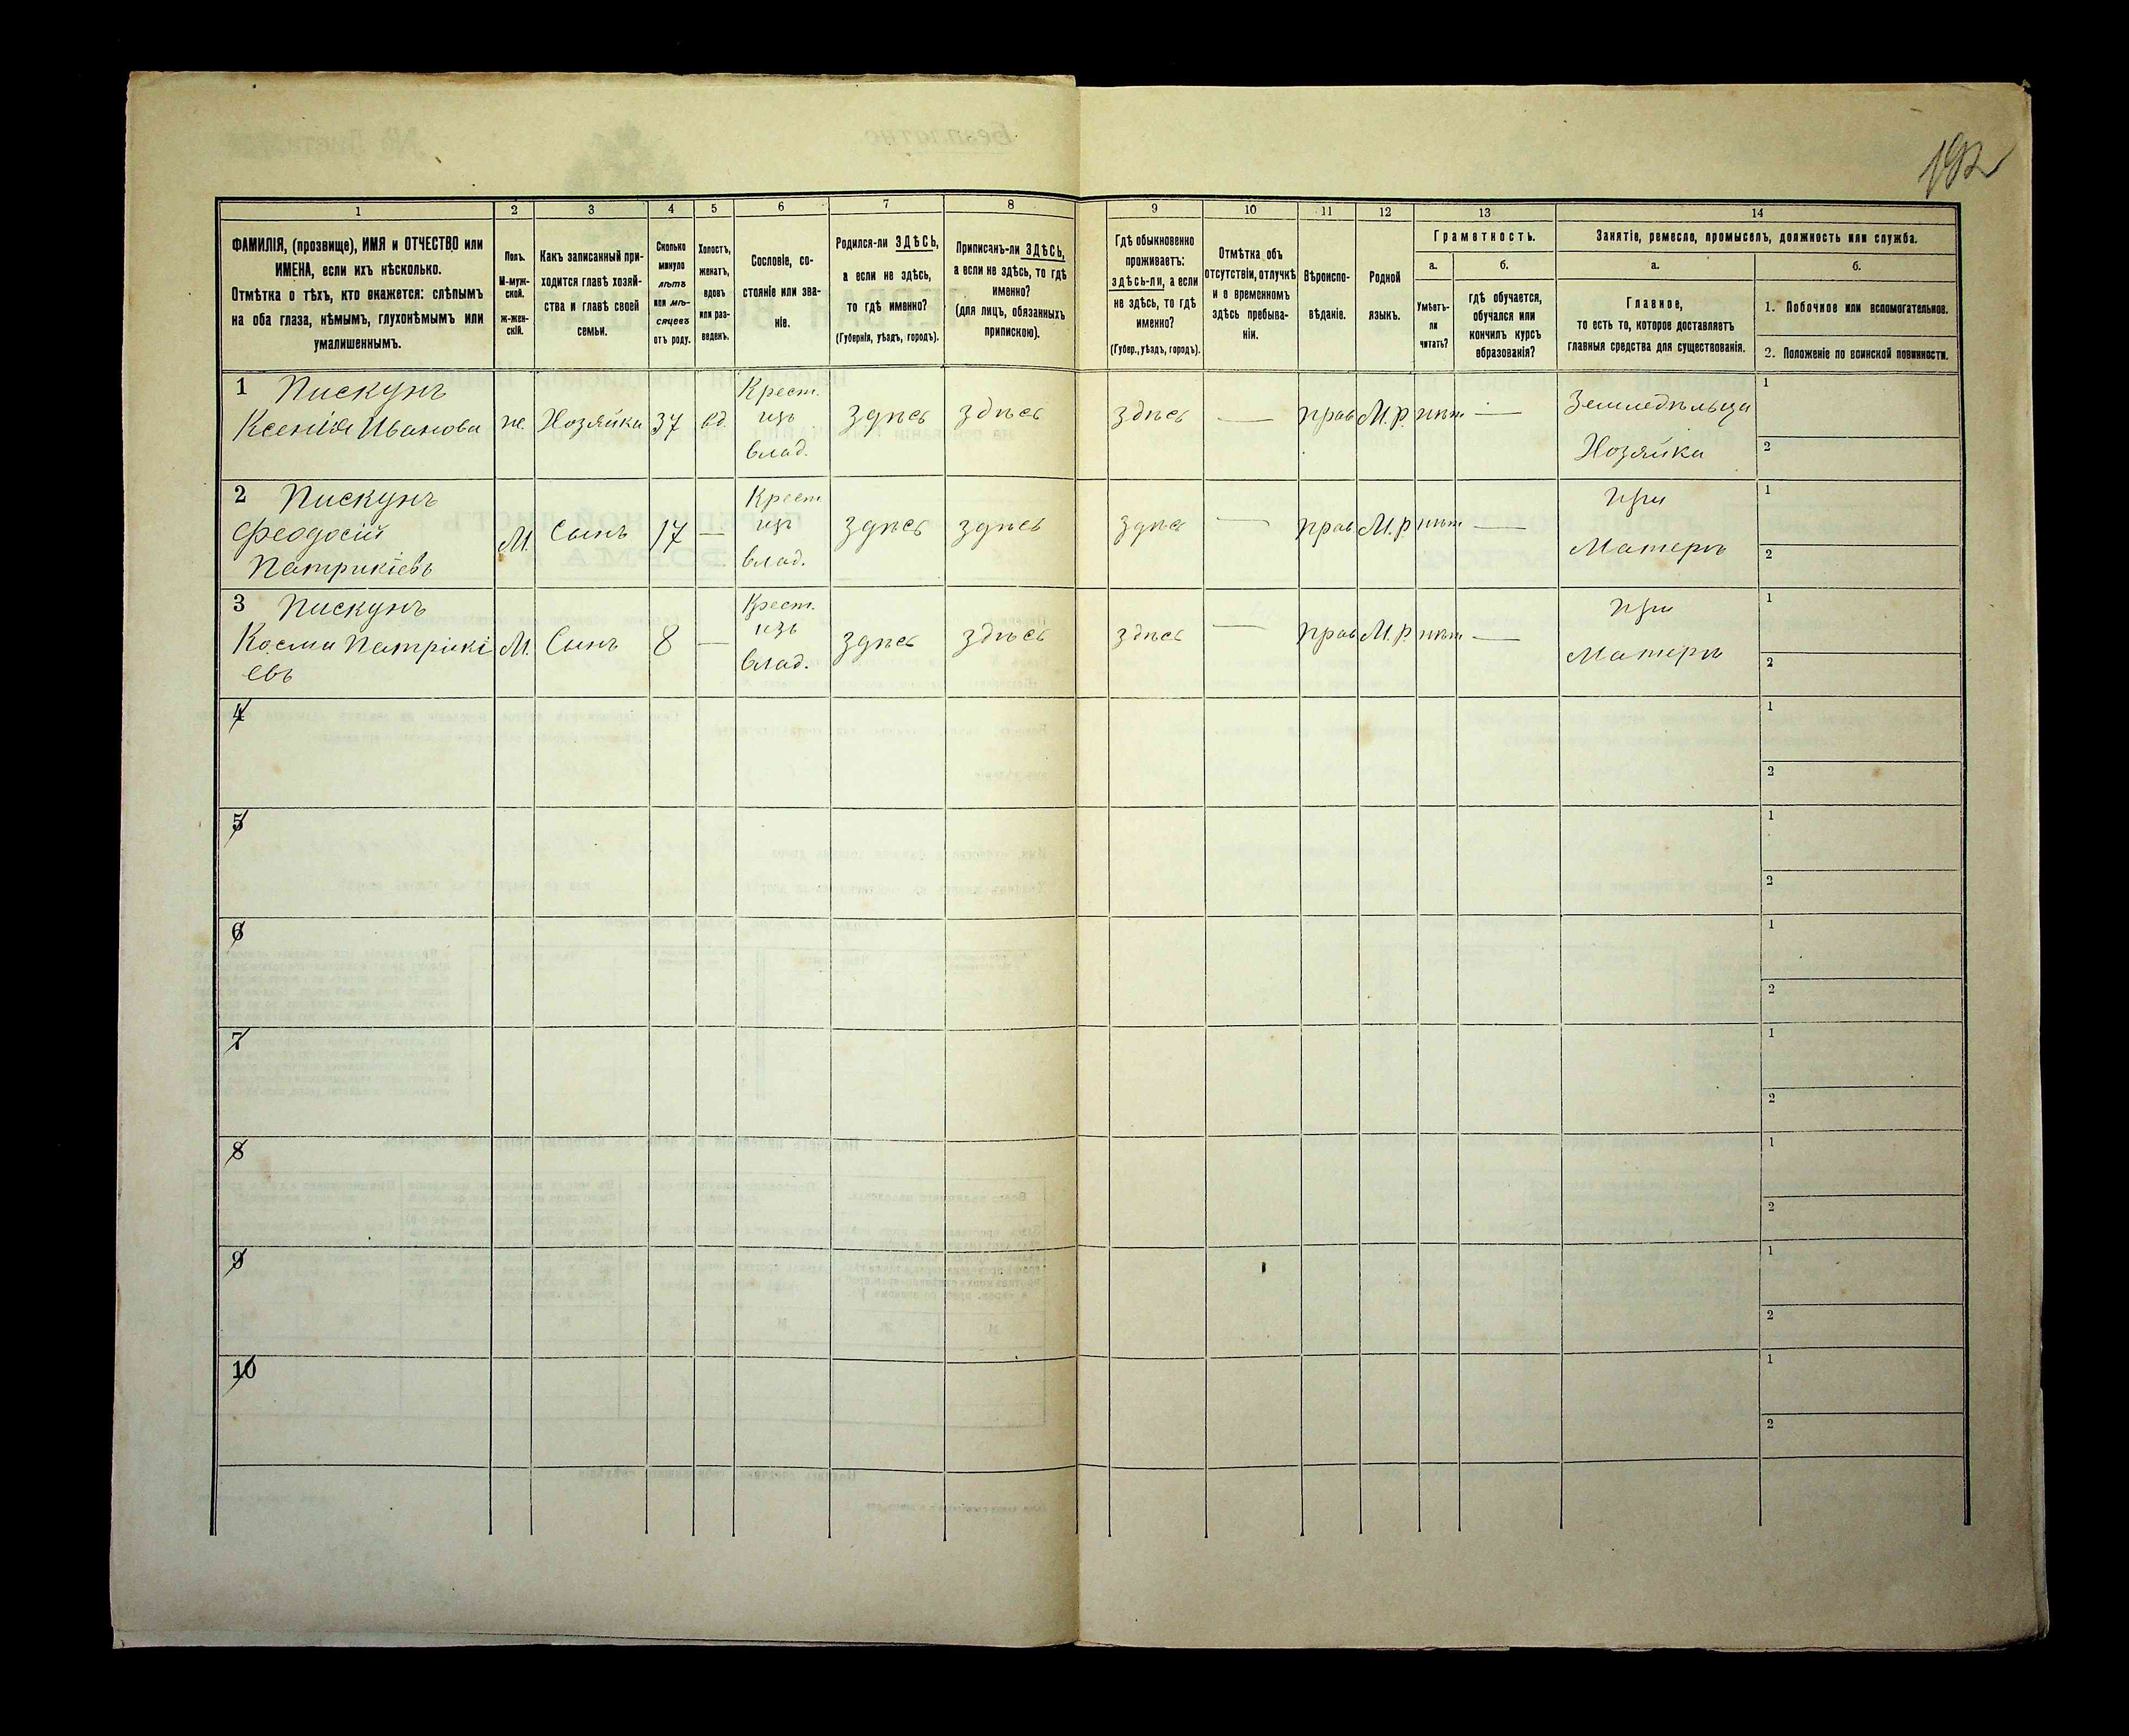 192
1 2 3 4 5 6 7 8 9 10 11 12 13 14
ФАМИЛІЯ, (прозвище), ИМЯ и ОТЧЕСТВО или
ИМЕНА, если ихъ нѣсколько.
Отмѣтка о тѣхъ, кто окажется: слѣпымъ
на оба глаза, нѣмымъ, глухонѣмымъ или
умалишеннымъ.
Полъ.
М-муж-
ской.
ж-жен-
скій.
Какъ записанный при-
ходится главѣ хозяй-
ства и главѣ своей
семьи.
Сколько
минуло
лѣтъ
или мѣ-
сяцевъ
отъ роду.
Холостъ,
женатъ,
вдовъ
или раз-
веденъ.
Сословіе, со-
стояніе или зва-
ніе.
Родился-ли ЗДѢСЬ,
а если не здѣсь,
то гдѣ именно?
(Губернія, уѣздъ, городъ).
Приписанъ-ли ЗДѢСЬ,
а если не здѣсь, то гдѣ
именно?
(для лицъ, обязанныхъ
припискою).
Гдѣ обыкновенно
проживаетъ:
здѣсь-ли, а если
не здѣсь, то гдѣ
именно?
(Губер., уѣздъ, городъ).
Отмѣтка объ
отсутствіи, отлучкѣ
и о временномъ
здѣсь пребыва-
ніи.
Вѣроиспо-
вѣданіе.
Родной
языкъ.
Грамотность.
а.
Умѣетъ-
ли
читать?
б.
гдѣ обучается,
обучался или
кончилъ курсъ
образованія?
Занятіе, ремесло, промыселъ, должность или служба.
а.
Главное,
то есть то, которое доставляетъ
главныя средства для существованія.
б.
1. Побочное или вспомогательное.
2. Положеніе по воинской повинности.
1 Пискунъ
Ксенія Иванова
ж.
Хозяйка
37
вд.
Крест.
изъ
влад.
здѣсь
здѣсь
здѣсь
—
прав
М.р.
нѣт
—
Земледѣльца
Хозяйка
1
2
2 Пискунъ
Феодосій
Патрикіевъ
М.
Сынъ
17
—
Крест
изъ
влад.
здѣсь
здѣсь
здѣсь
—
прав
М.р
нѣт
—
при
Матери
1
2
3 Пискунъ
Косма Патрикі
евъ
М.
Сынъ
8
—
Крест.
изъ
влад.
здѣсь
здѣсь
здѣсь
—
прав
М.р.
нѣт
—
при
Матери
1
2
4
1
2
5
1
2
6
1
2
7
1
2
8
1
2
9
1
2
10
1
2